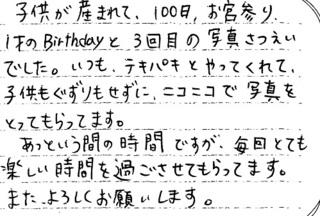 子供が産まれて、100日、お宮参り、
1才のBirthdayと3回目の写真さつえい
でした。いつも、テキパキとやってくれて、
子供もぐずりもせずに、ニコニコで写真を
とってもらってます。
あっという間の時間ですが、毎回とても
楽しい時間を過ごさせてもらってます。
また、よろしくお願いします。